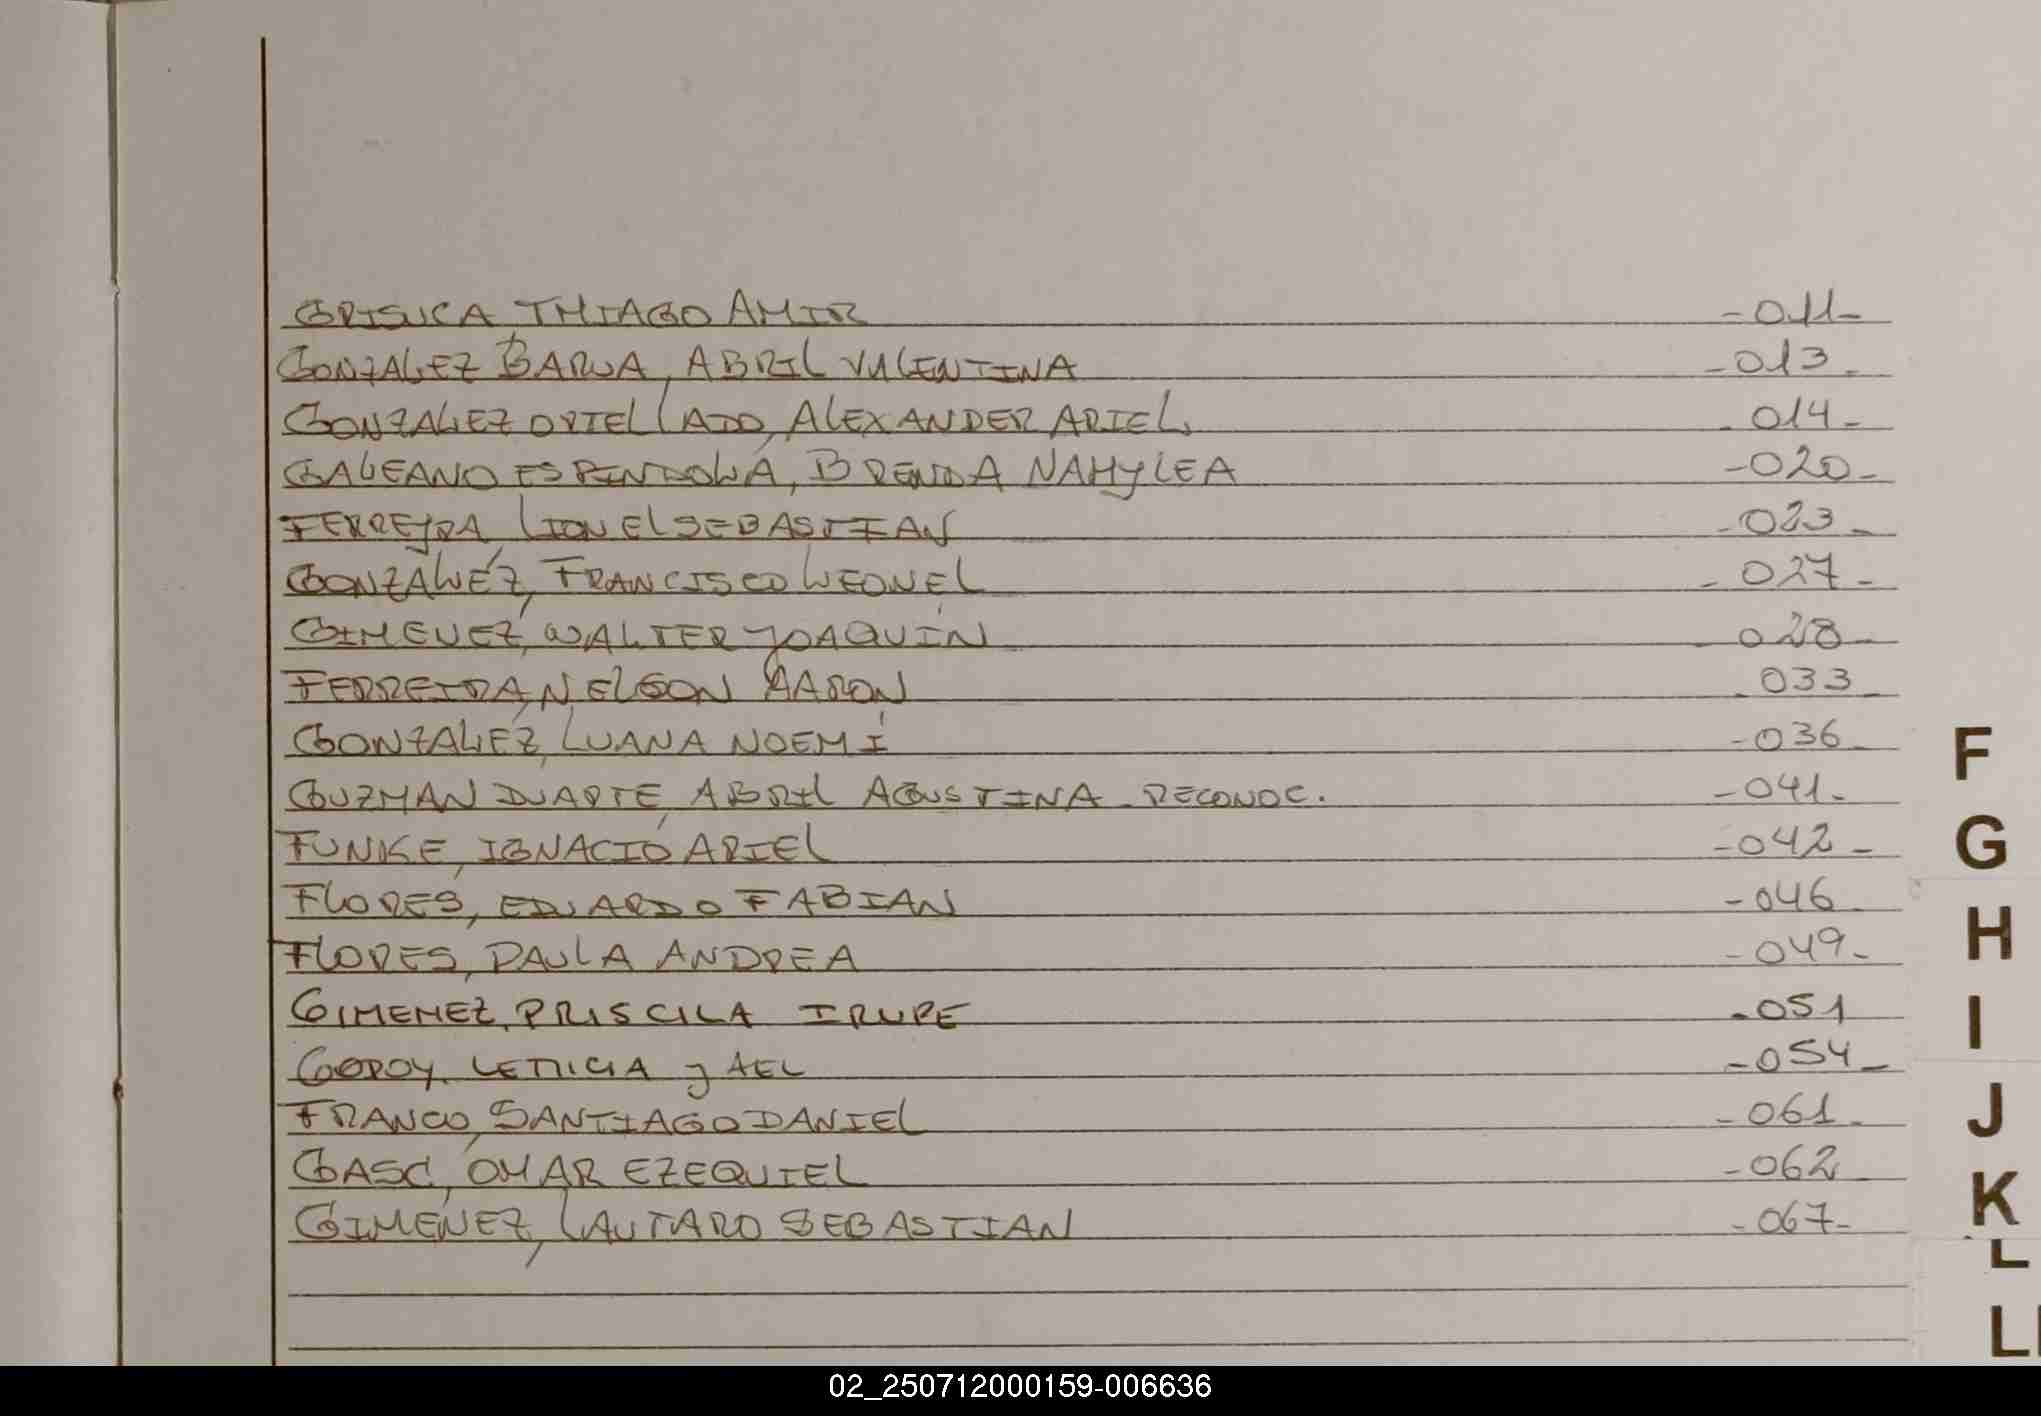 GRISUCA, THIAGO AMIR -011-
GONZALEZ BARUA, ABRIL VALENTINA -013-
GONZALEZ ORTELLADO, ALEXANDER ARIEL. -014-
GALEANO ESPINDOLA, BRENDA NAHYLEA -020-
FERREYRA, LIONEL SEBASTIAN -023-
GONZALEZ, FRANCISCO LEONEL -027-
GIMENEZ, WALTER JOAQUÍN 028-
FERREIRA, NELSON AARON -033-
GONZALEZ, LUANA NOEMÍ -036-
GUZMAN DUARTE, ABRIL AGUSTINA - RECONOC. -041-
FUNKE, IGNACIO ARIEL -042-
FLORES, EDUARDO FABIAN -046-
FLORES, PAULA ANDREA -049-
GIMENEZ, PRISCILA IRUPE -051
GODOY, LETICIA YAEL -054-
FRANCO, SANTIAGO DANIEL -061-
GASC, OMAR EZEQUIEL -062
GIMENEZ, LAUTARO SEBASTIAN -067-
F
G
H
I
J
K
L
LL
02_250712000159-006636